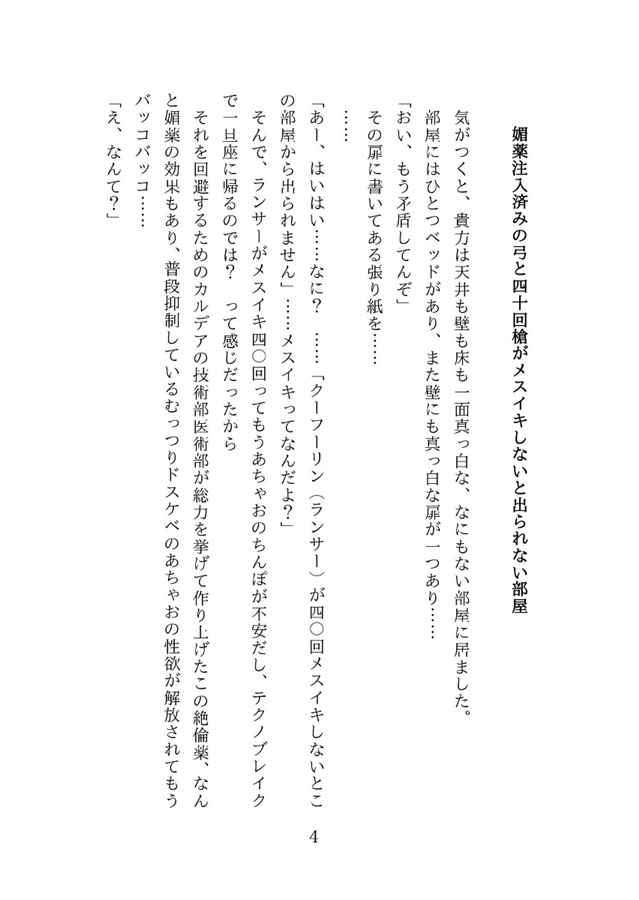 媚薬注入済みの弓と四十回槍がメスイキしないと出られない部屋
気がつくと、貴方は天井も壁も床も一面真っ白な、なにもない部屋に居ました。
部屋にはひとつベッドがあり、また壁にも真っ白な扉が一つあり……
「おい、もう矛盾してんぞ」
その扉に書いてある張り紙を……
……
「あー、はいはい……なに？　……「クーフーリン（ランサー）が四〇回メスイキしないとこ
の部屋から出られません」……メスイキってなんだよ？」
そんで、ランサーがメスイキ四〇回ってもうあちゃおのちんぽが不安だし、テクノブレイク
で一旦座に帰るのでは？　って感じだったから
それを回避するためのカルデアの技術部医術部が総力を挙げて作り上げたこの絶倫薬、なん
と媚薬の効果もあり、普段抑制しているむっつりドスケベのあちゃおの性欲が解放されてもう
バッコバッコ……
「え、なんて？」
4